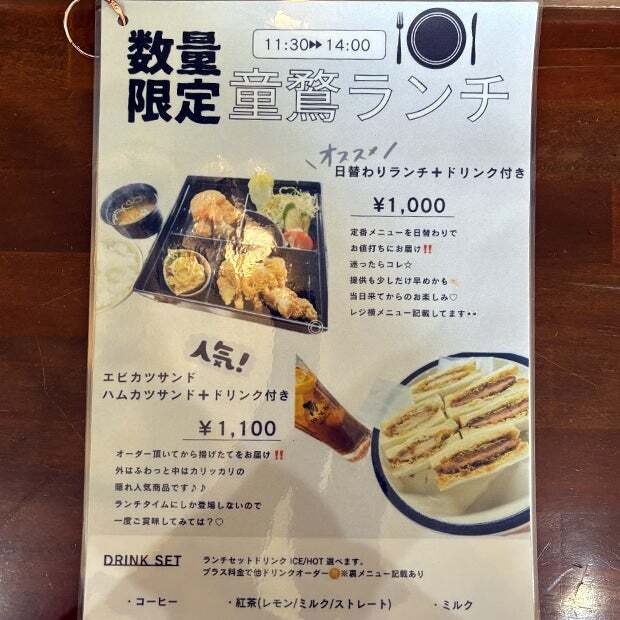 数量
限定
11:30▸▸14:00
童鶩ランチ
\オススメ/
日替わりランチ＋ドリンク付き
￥1,000
定番メニューを日替わりで
お値打ちにお届け‼
迷ったらコレ☆
提供も少しだけ早めかも
当日来てからのお楽しみ♡
レジ横メニュー記載してます
人気!
エビカツサンド
ハムカツサンド＋ドリンク付き
￥1,100
オーダー頂いてから揚げたてをお届け‼
外はふわっと中はカリッカリの
隠れ人気商品です♪♪
ランチタイムにしか登場しないので
一度ご賞味してみては？♡
DRINK SET
ランチセットドリンク ICE/HOT 選べます。
プラス料金で他ドリンクオーダー※裏メニュー記載あり
・コーヒー ・紅茶(レモン/ミルク/ストレート) ・ミルク